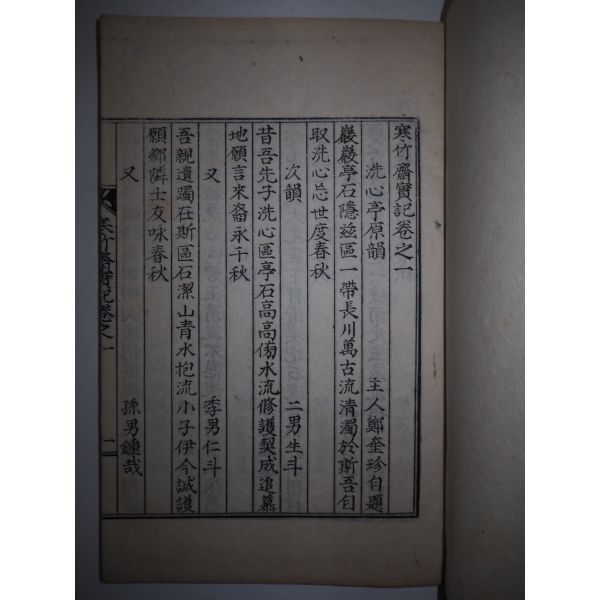 寒竹齋實記卷之一
洗心亭原韻 主人鄭奎珍自題
巖巖亭石隱玆區一帶長川萬古流淸濁於斯吾自
取洗心忘世度春秋
次韻 二男生斗
昔吾先子洗心區亭石高高傍水流修護契成追慕
地願言來裔永千秋
又 季男仁斗
吾親遺躅在斯區石潔山青水抱流小子伊今誠護
願鄉隣士友咏春秋
又 孫男鍾哉
寒竹齋實記卷之一